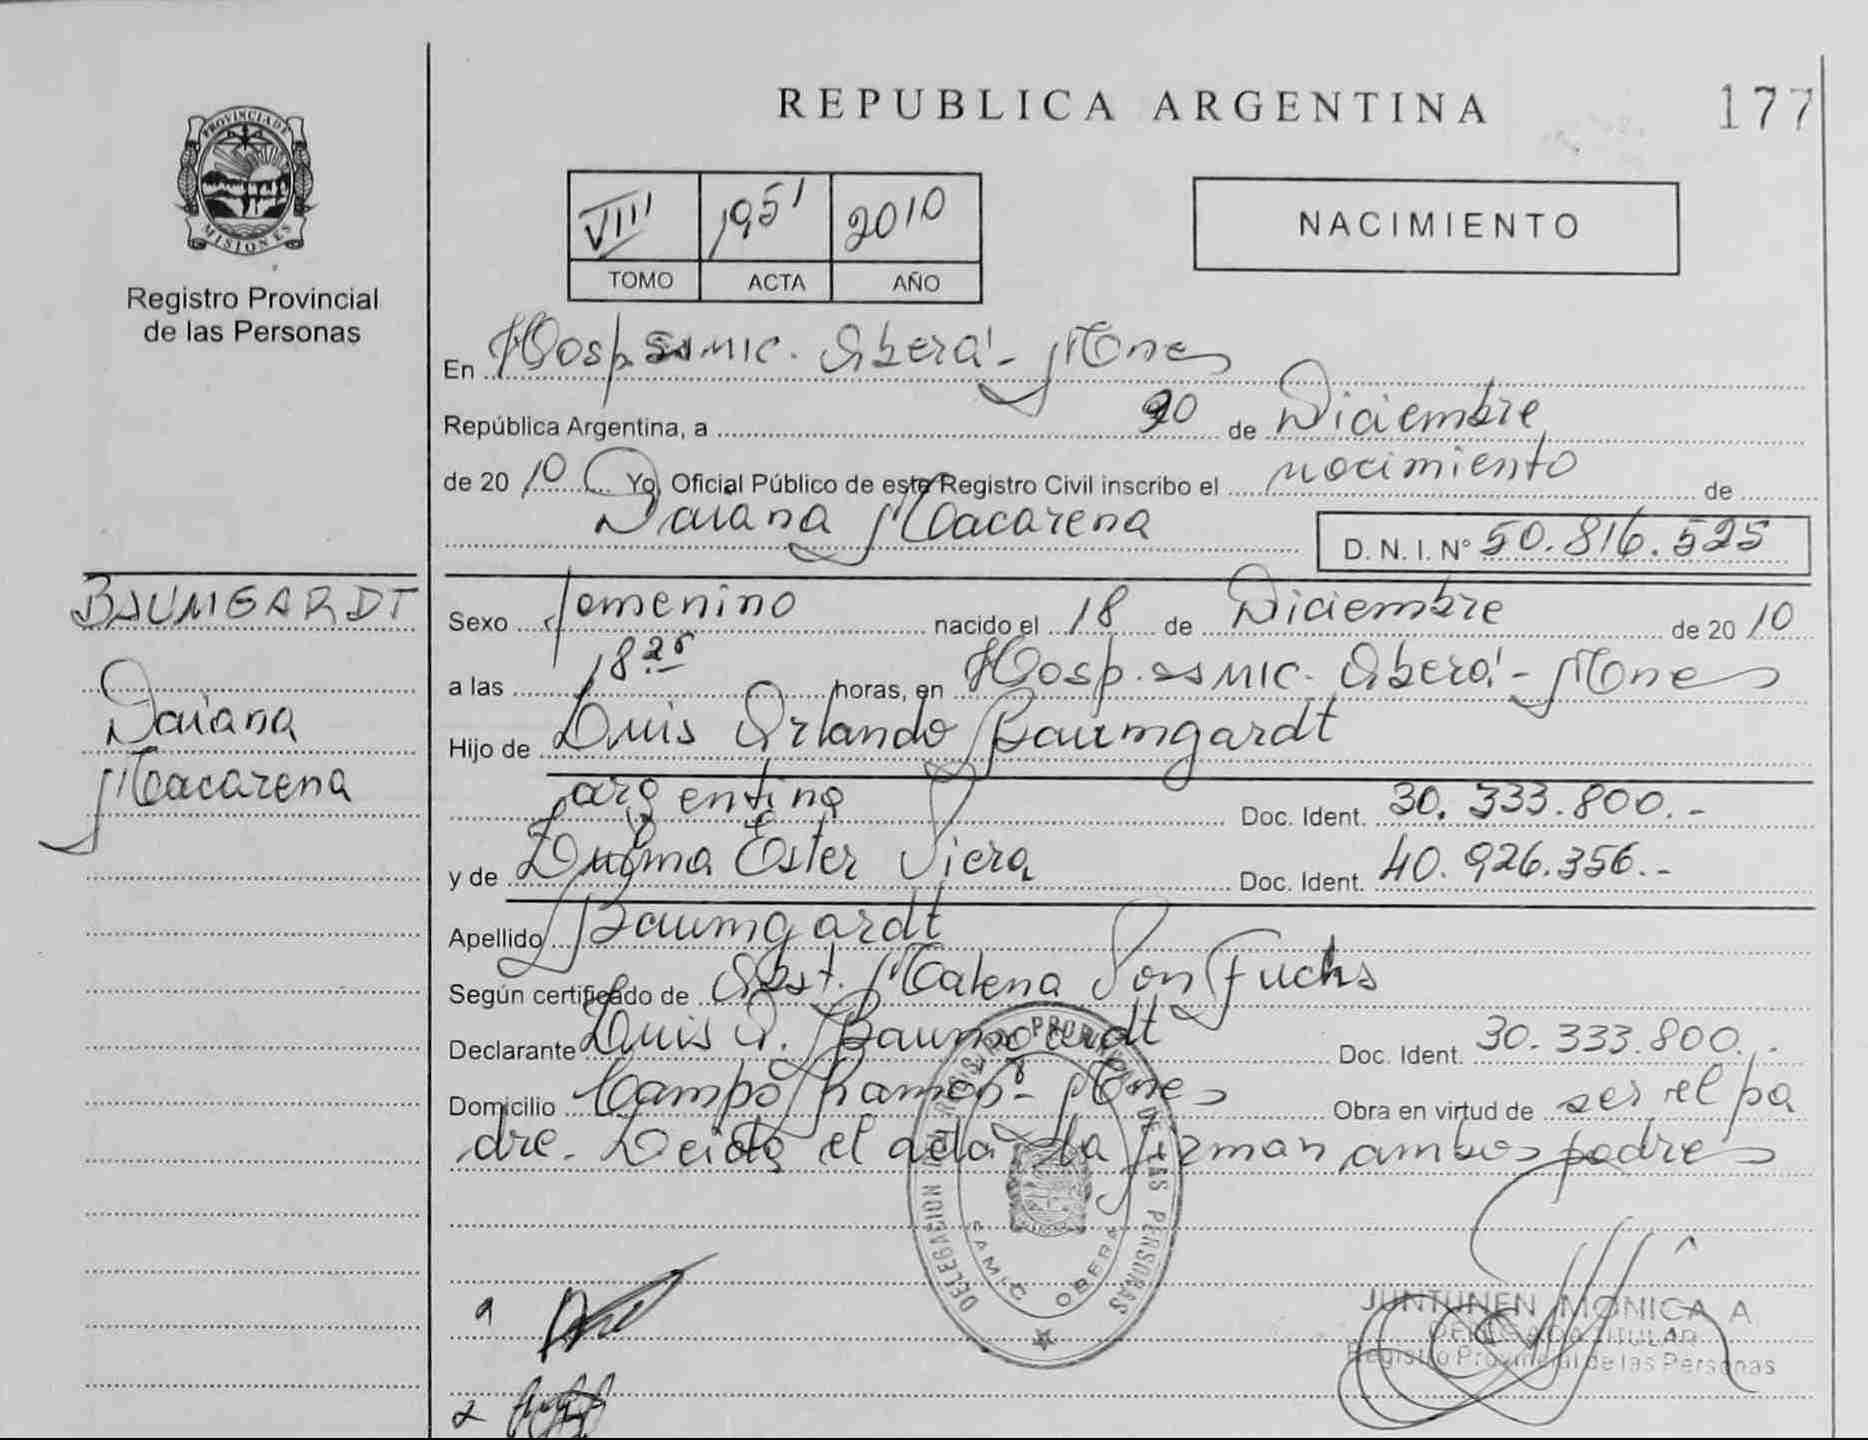 REPUBLICA ARGENTINA
177
PROVINCIA DE
MISIONES
Registro Provincial
de las Personas
VIII 1951 2010
TOMO ACTA AÑO
NACIMIENTO
En Hosp. SAMIC. Oberá - Mnes
República Argentina, a 20 de Diciembre
de 2010 Yo Oficial Público de este Registro Civil inscribo el nacimiento de
Daiana Macarena D. N. I. Nº 50.816.525
BAUMGARDT
Daiana
Macarena
Sexo femenino nacido el 18 de Diciembre de 2010
a las 18.25 horas, en Hosp. SAMIC. Oberá - Mnes
Hijo de Luis Orlando Baumgardt
argentino Doc. Ident. 30.333.800.-
y de Ester Viera Doc. Ident. 40.926.356.-
Apellido Baumgardt
Según certificado de Obst. Malena Von Fuchs
Declarante Luis O. Baumgardt Doc. Ident. 30.333.800.-
Domicilio Campo Ramón - Mnes Obra en virtud de ser el pa
dre. Leida el acta la firman ambos padres
DELEGACION REGISTRO PROVINCIAL DE LAS PERSONAS
SAMIC OBERA
1
2
JUNTUNEN MONICA A
DELEGADA TITULAR
Registro Provincial de las Personas